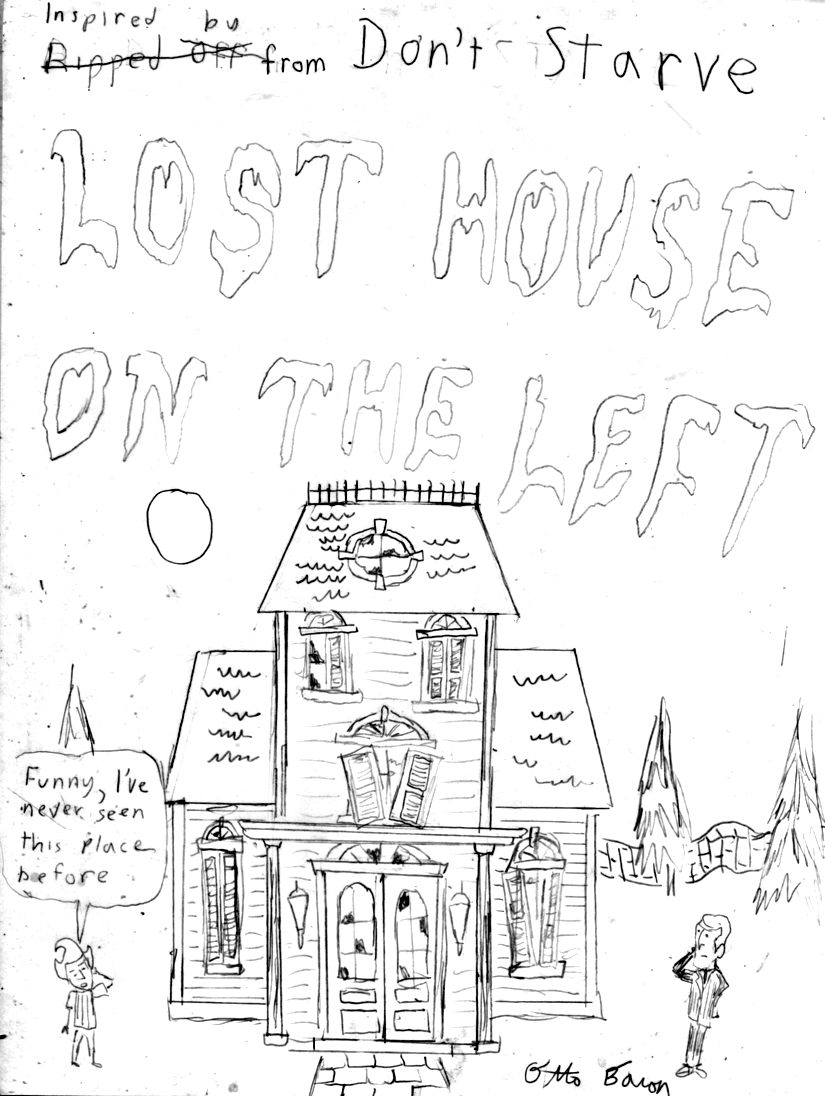 Inspired by
Ripped Off from Don't Starve
LOST HOUSE
ON THE LEFT
Funny, I've
never seen
this place
before
Otto Bacon